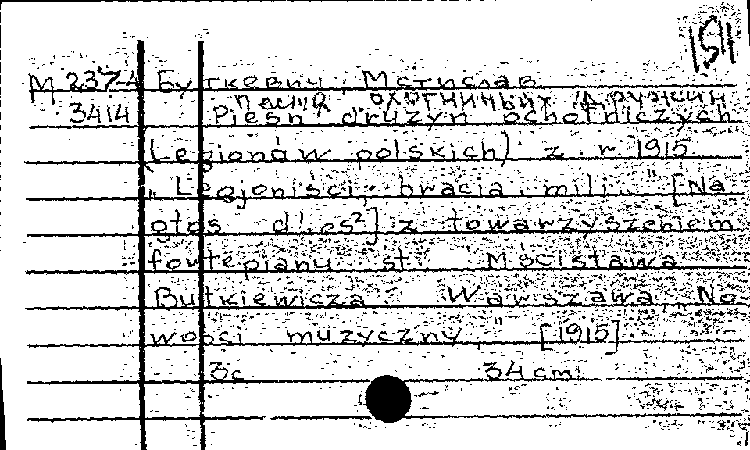 1511
М 237-4 Буткевич, Мстислав
3414 песня охотничьих дружин
Pieśń drużyn ochotniczych
(Legionów polskich) z r 1915
"Legjoniści, bracia mili." [Na
głos d'.es²] z towarzyszeniem
fortepianu st. Mścisława
Butkiewicza Warszawa, No-
wości muzyczny," [1915].
3с 34 cm.